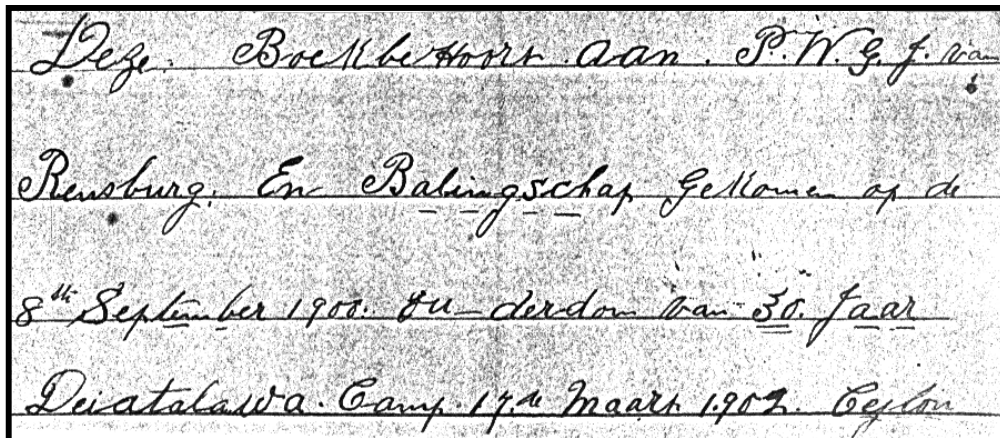 Deze. Boek behoort aan. P. W. G. J. van
Rensburg. En Balingschap Gekomen op de
8th September 1900. ou-derdom van 30. Jaar
Deiatalawa. Camp. 17.de Maart. 1902. Ceylon